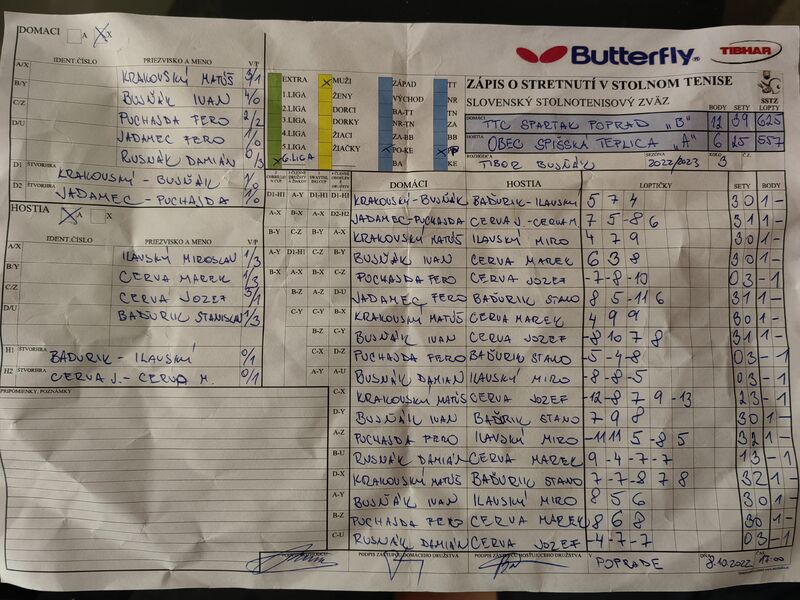 DOMACI A X
Butterfly
TIBHAR
IDENT.ČÍSLO PRIEZVISKO A MENO V/P
A/X KRAKOVSKÝ MATÚŠ 3/1
B/Y BUSŇÁK IVAN 4/0
C/Z PUCHAJDA FERO 2/2
D/U JADAMEC FERO 1/0
RUSNÁK DAMIÁN 0/3
D1 ŠTVORHRA KRAKOVSKÝ - BUSŇÁK 1/0
D2 JADAMEC - PUCHAJDA 1/0
EXTRA
1.LIGA
2.LIGA
3.LIGA
4.LIGA
5.LIGA
6.LIGA
MUŽI
ŽENY
DORCI
DORKY
ŽIACI
ŽIAČKY
ZÁPAD
VÝCHOD
BA-TT
NR-TN
ZA-BB
PO-KE
BA
TT
NR
TN
ZA
BB
PO
KE
ZÁPIS O STRETNUTÍ V STOLNOM TENISE
SLOVENSKÝ STOLNOTENISOVÝ ZVÄZ
SSTZ
BODY SETY LOPTY
DOMÁCI TTC SPARTAK POPRAD "B" 12 39 625
HOSTIA OBEC SPIŠSKÁ TEPLICA "A" 6 25 557
ROZHODCA TIBOR BUSŇÁK SEZÓNA 2022/2023 KOLO 3
HOSTIA A X
IDENT.ČÍSLO PRIEZVISKO A MENO V/P
A/X ILAVSKÝ MIROSLAV 1/3
B/Y CERVA MAREK 1/3
C/Z CERVA JOZEF 3/1
D/U BAĎURIK STANISLAV 1/3
H1 ŠTVORHRA BAĎURIK - ILAVSKÝ 0/1
H2 ŠTVORHRA CERVA J. - CERVA M. 0/1
PRIPOMIENKY, POZNÁMKY
DOMÁCI HOSTIA LOPTIČKY SETY BODY
KRAKOVSKÝ - BUSŇÁK BAĎURIK - ILAVSKÝ 5 7 4 3 0 1 -
JADAMEC - PUCHAJDA CERVA J. - CERVA M. 7 5 -8 6 3 1 1 -
KRAKOVSKÝ MATÚŠ ILAVSKÝ MIRO 4 7 9 3 0 1 -
BUSŇÁK IVAN CERVA MAREK 6 3 8 3 0 1 -
PUCHAJDA FERO CERVA JOZEF -7 -8 -10 0 3 - 1
JADAMEC FERO BAĎURIK STANO 8 5 -11 6 3 1 1 -
KRAKOVSKÝ MATÚŠ CERVA MAREK 4 9 9 3 0 1 -
BUSŇÁK IVAN CERVA JOZEF -8 10 7 8 3 1 1 -
PUCHAJDA FERO BAĎURIK STANO -5 -4 -8 0 3 - 1
RUSNÁK DAMIÁN ILAVSKÝ MIRO -8 -8 -5 0 3 - 1
C-X KRAKOVSKÝ MATÚŠ CERVA JOZEF -12 -8 7 9 -13 2 3 - 1
D-Y BUSŇÁK IVAN BAĎURIK STANO 7 9 8 3 0 1 -
A-Z PUCHAJDA FERO ILAVSKÝ MIRO -11 11 5 -8 5 3 2 1 -
B-U RUSNÁK DAMIÁN CERVA MAREK 9 -4 -7 -7 1 3 - 1
D-X KRAKOVSKÝ MATÚŠ BAĎURIK STANO 7 -7 -8 7 8 3 2 1 -
A-Y BUSŇÁK IVAN ILAVSKÝ MIRO 8 5 6 3 0 1 -
B-Z PUCHAJDA FERO CERVA MAREK 8 6 8 3 0 1 -
C-U RUSNÁK DAMIÁN CERVA JOZEF -4 -7 -7 0 3 - 1
PODPIS ZÁSTUPCU DOMÁCEHO DRUŽSTVA PODPIS ZÁSTUPCU HOSŤUJÚCEHO DRUŽSTVA V POPRADE DŇA 8.10.2022 ČAS 17:00